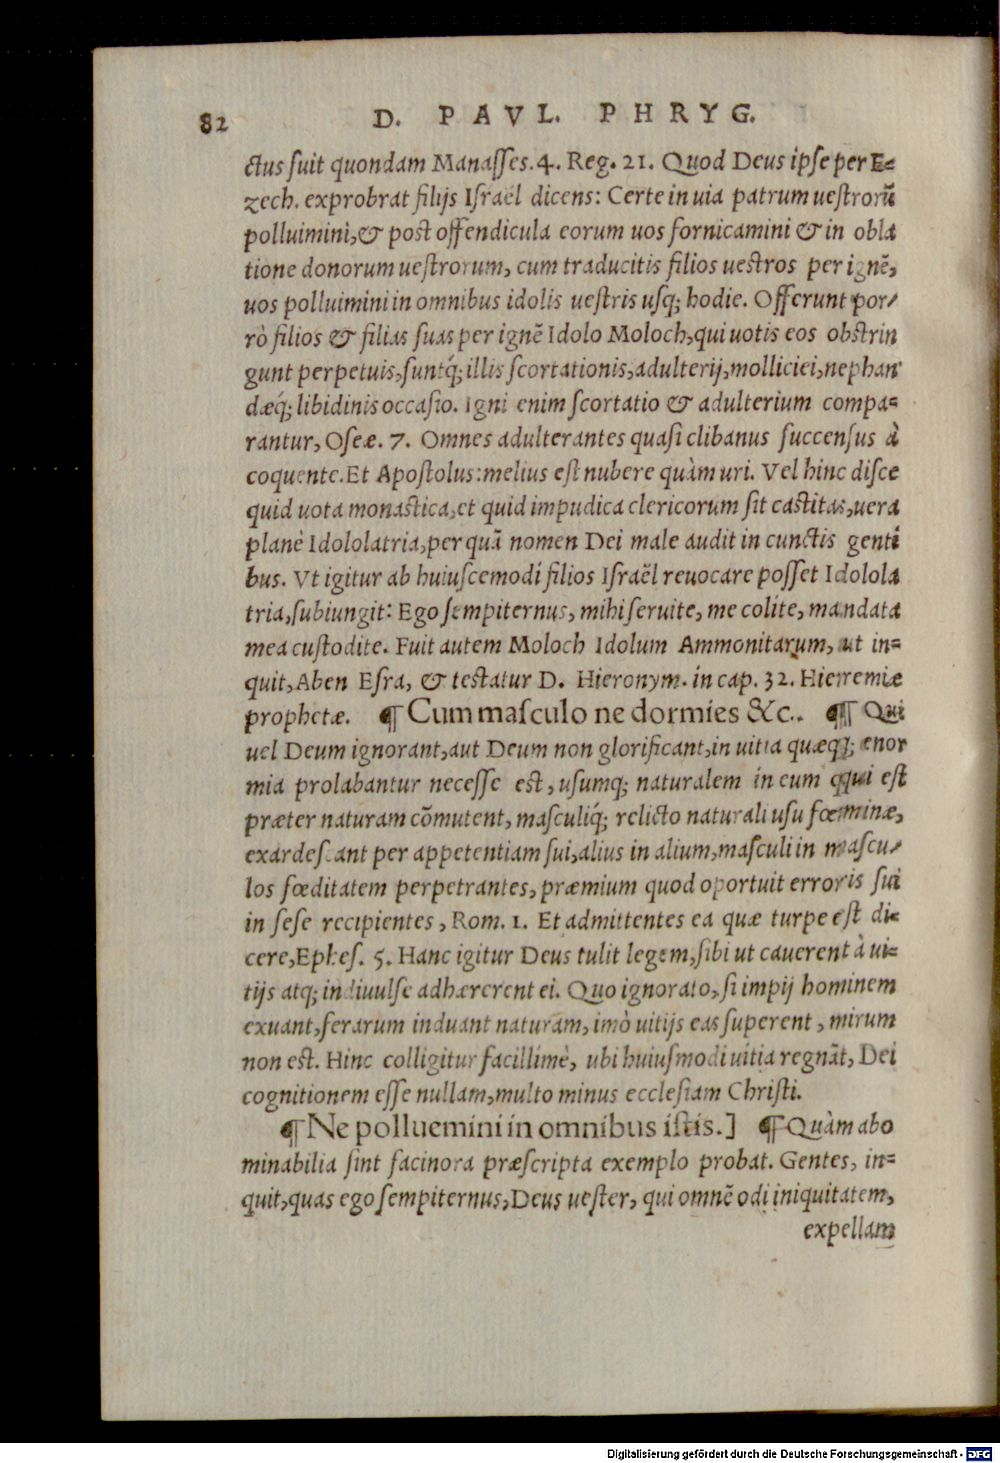 82 D. PAVL. PHRYG.
ctus fuit quondam Manasses. 4. Reg. 21. Quod Deus ipse per E=
zech. exprobrat filijs Israël dicens: Certe in uia patrum uestrorũ
polluimini, & post offendicula eorum uos fornicamini & in obla
tione donorum uestrorum, cum traducitis filios uestros per ignẽ,
uos polluimini in omnibus idolis uestris usq; hodie. Offerunt por/
rò filios & filias suas per ignẽ Idolo Moloch, qui uotis eos obstrin
gunt perpetuis, suntq́; illis scortationis, adulterij, molliciei, nephan
dæq́; libidinis occasio. Igni enim scortatio & adulterium compa=
rantur, Oseæ. 7. Omnes adulterantes quasi clibanus succensus à
coquente. Et Apostolus: melius est nubere quàm uri. Vel hinc disce
quid uota monastica, et quid impudica clericorum sit castitas, uera
planè Idololatria, per quã nomen Dei male audit in cunctis genti
bus. Vt igitur ab huiuscemodi filios Israël reuocare posset Idolola
tria, subiungit: Ego sempiternus, mihi seruite, me colite, mandata
mea custodite. Fuit autem Moloch Idolum Ammonitarum, ut in=
quit, Aben Esra, & testatur D. Hieronym. in cap. 32. Hieremiæ
prophetæ. ¶ Cum masculo ne dormies &c.. ¶ Qui
uel Deum ignorant, aut Deum non glorificant, in uitia quæq; enor
mia prolabantur necesse est, usumq; naturalem in eum qqui est
præter naturam cõmutent, masculiq́; relicto naturali usu fœminæ,
exardescant per appetentiam sui, alius in alium, masculi in mascu/
los fœditatem perpetrantes, præmium quod oportuit erroris sui
in sese recipientes, Rom. 1. Et admittentes ea quæ turpe est di=
cere, Ephes. 5. Hanc igitur Deus tulit legem, sibi ut cauerent à ui=
tijs atq; indiuulse adhærerent ei. Quo ignorato, si impij hominem
exuant, ferarum induant naturam, imò uitijs eas superent, mirum
non est. Hinc colligitur facillimè, ubi huiusmodi uitia regnãt, Dei
cognitionem esse nullam, multo minus ecclesiam Christi.
¶ Ne polluemini in omnibus istis.] ¶ Quàm abo
minabilia sint facinora præscripta exemplo probat. Gentes, in=
quit, quas ego sempiternus, Deus uester, qui omnẽ odi iniquitatem,
expellam
Digitalisierung gefördert durch die Deutsche Forschungsgemeinschaft - DFG